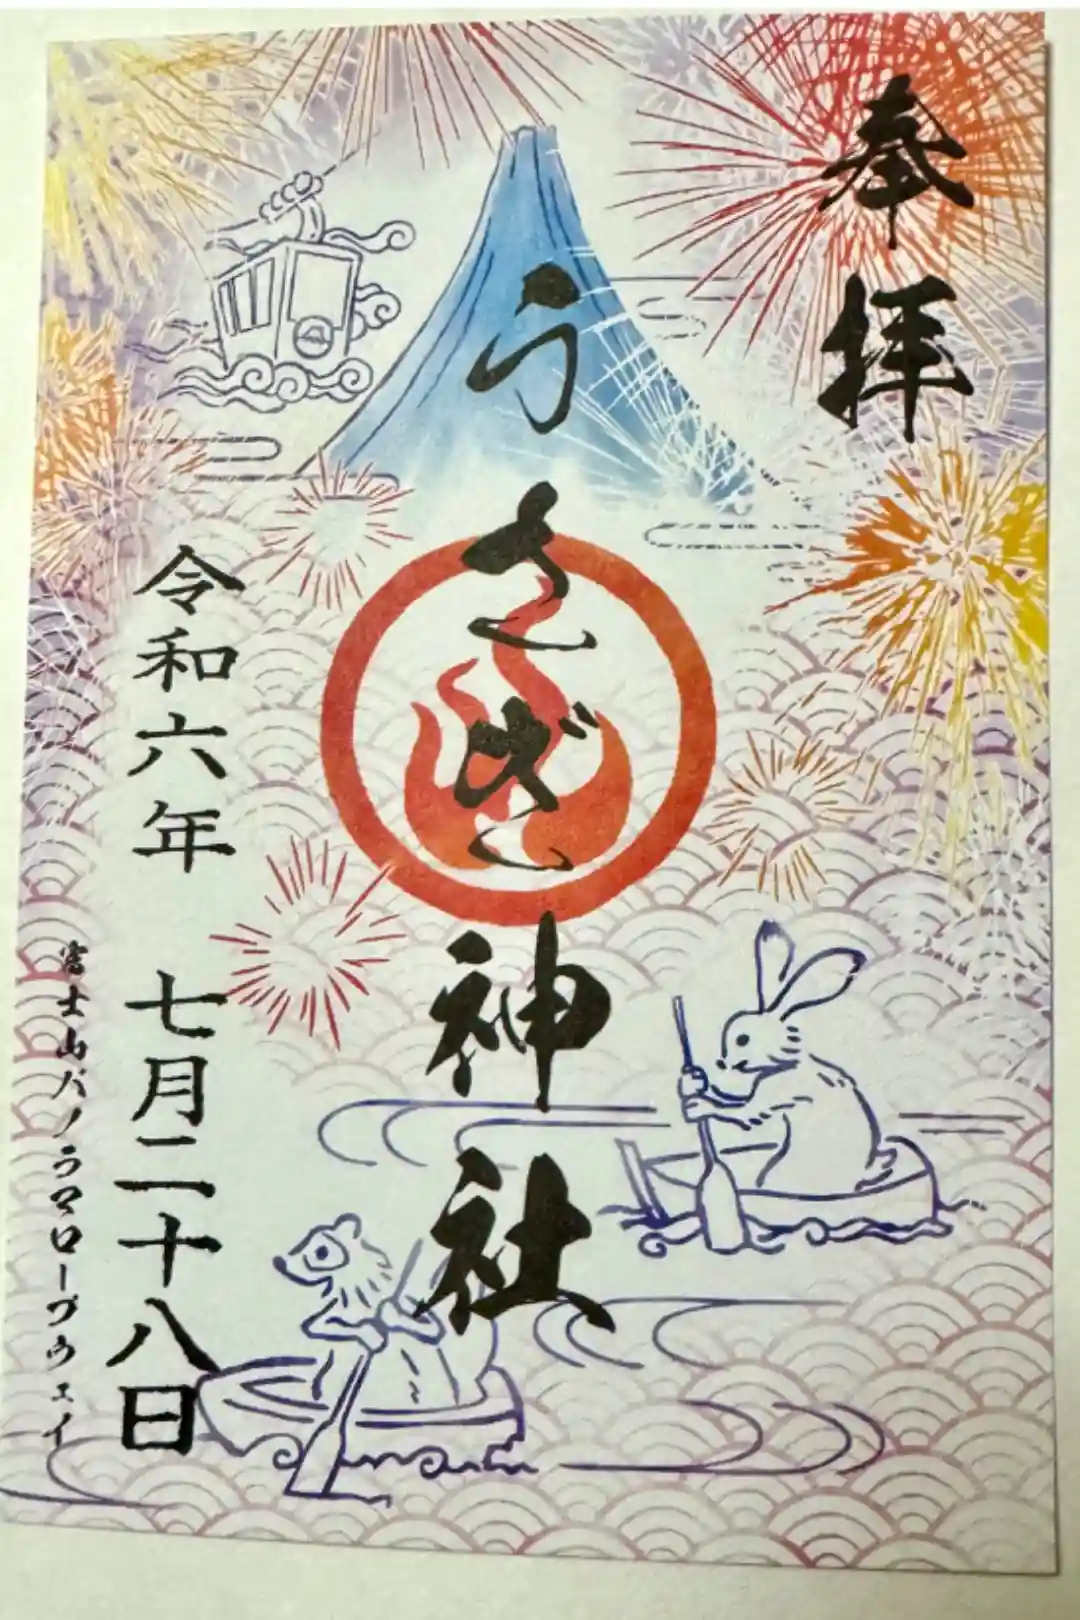 奉拝
うさぎ神社
令和六年 七月二十八日
富士山パノラマロープウェイ